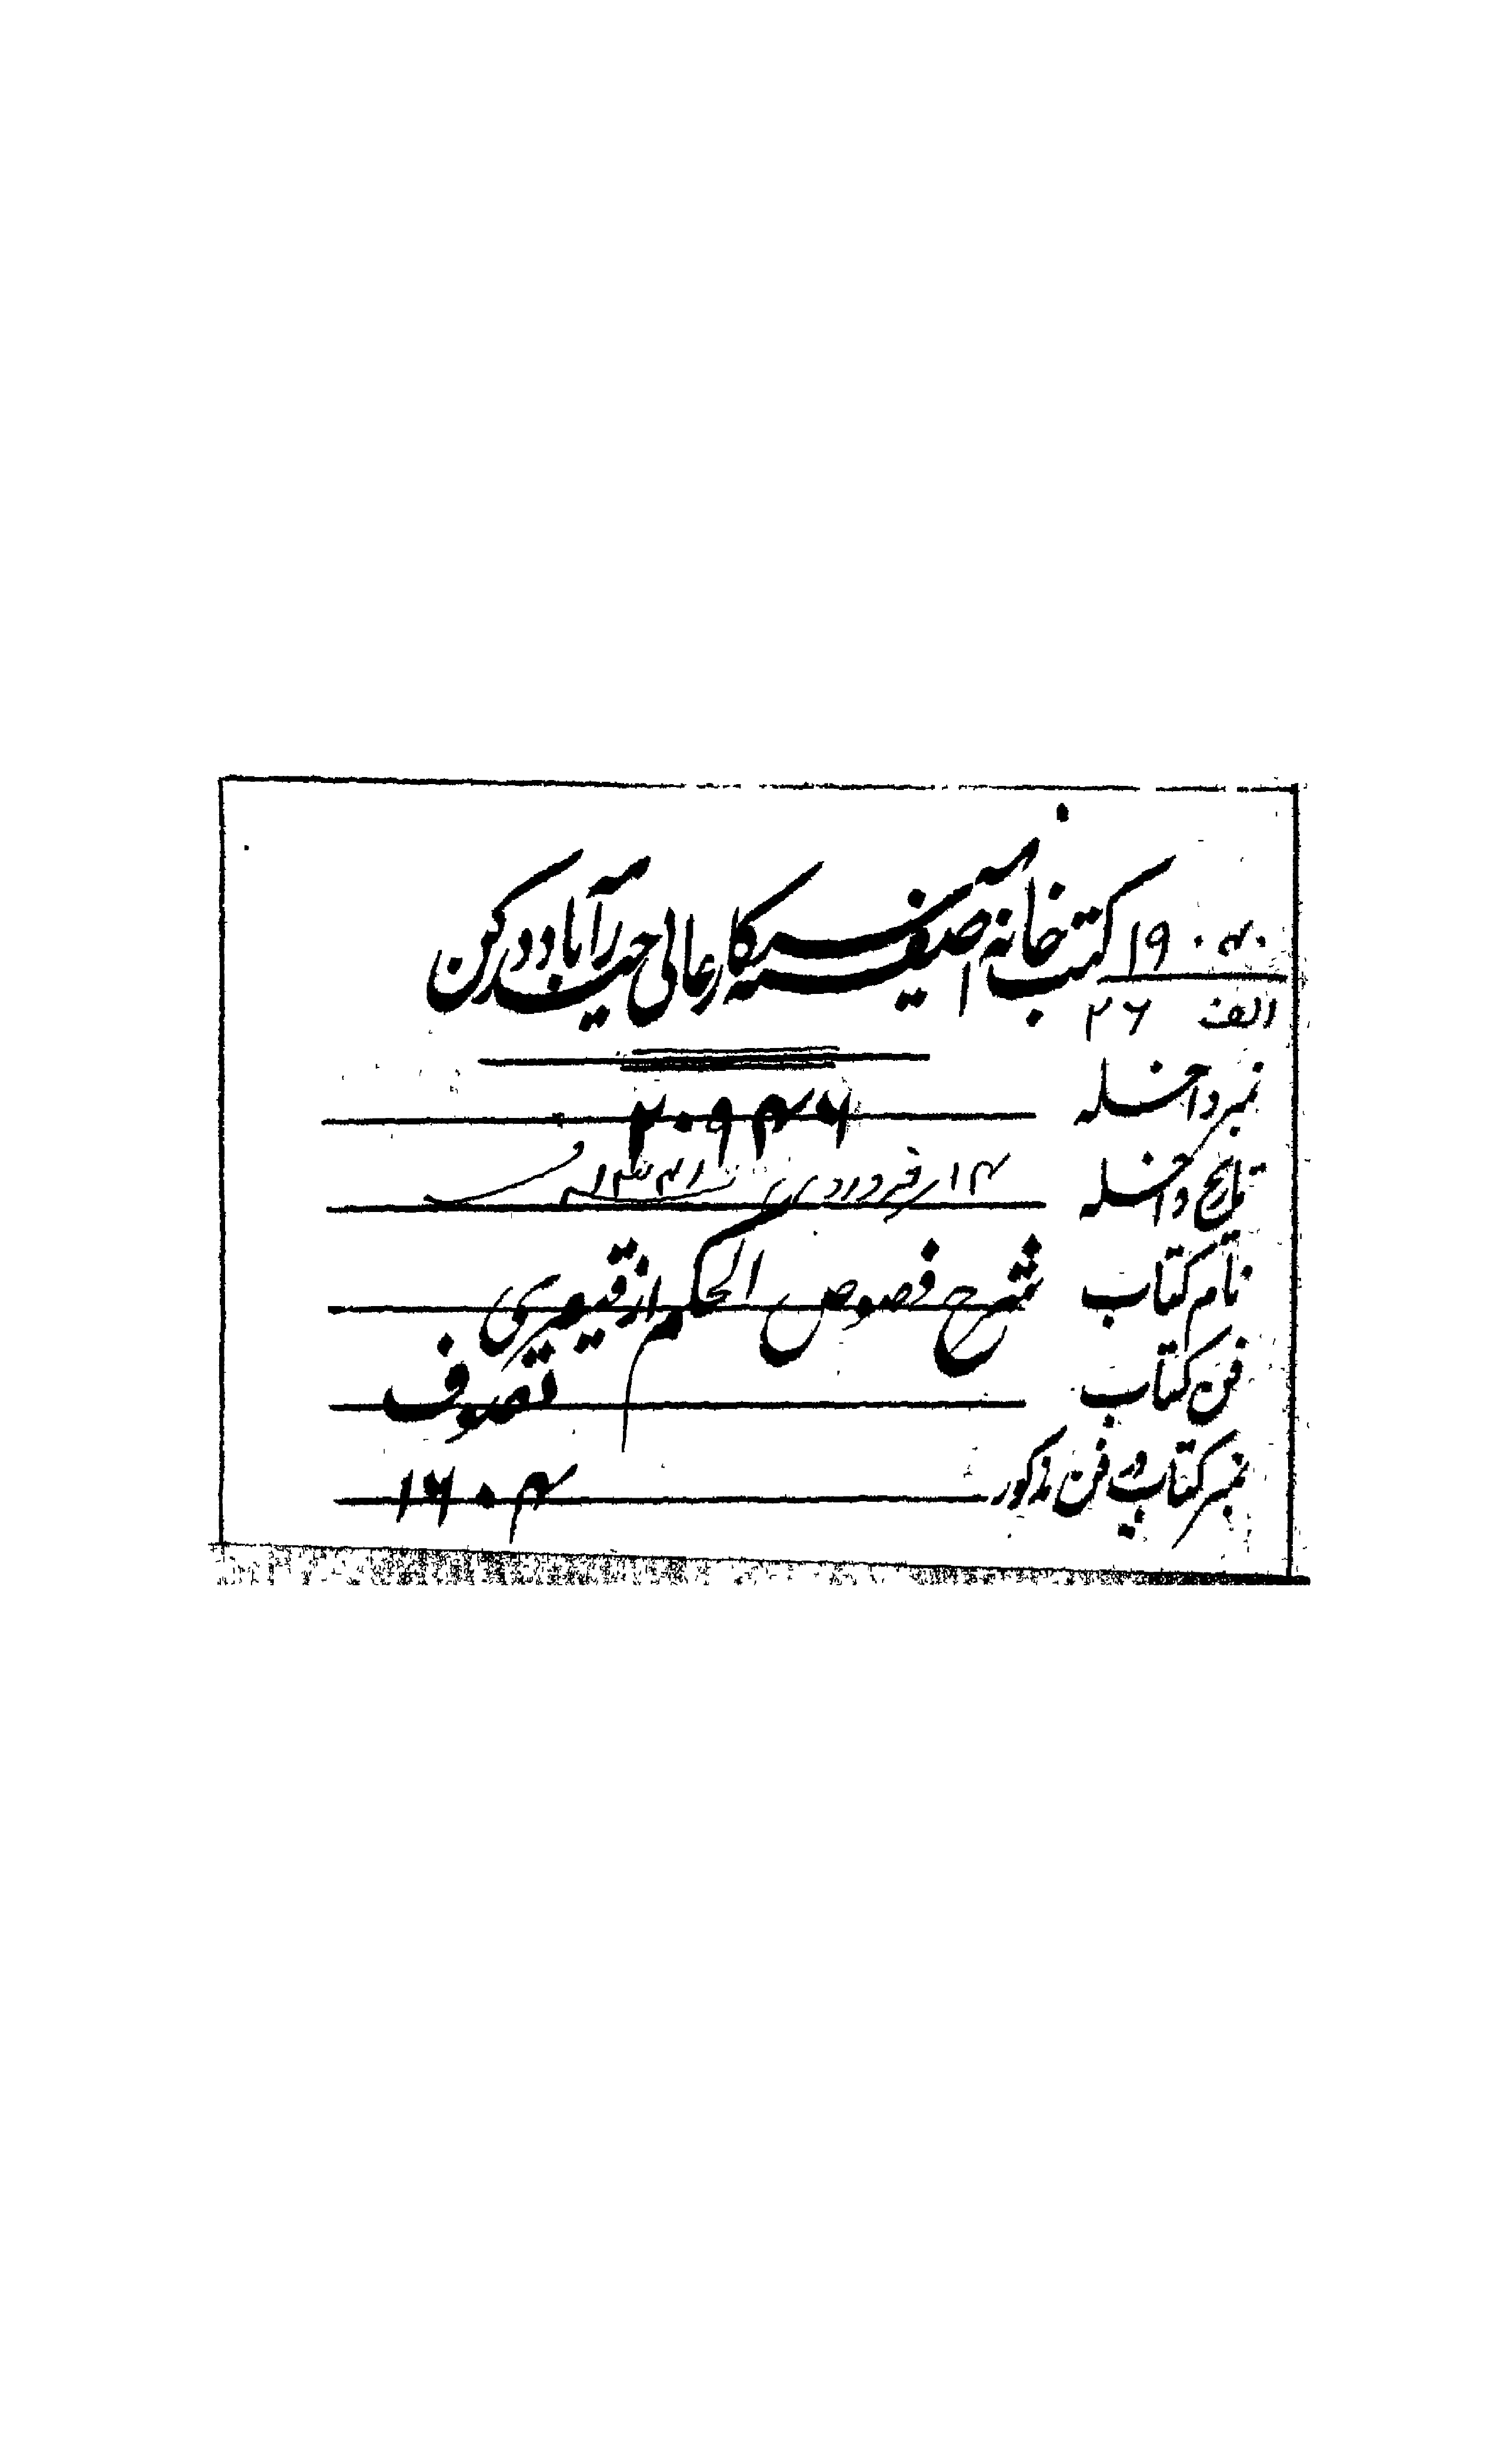 کتب خانہ آصفیہ سرکار عالی حیدرآباد دکن
۱۹۰۴۰
الف ۲۶
نمبر داخلہ ۲۰۹۴۶
تاریخ داخلہ ۱۴ فروردی ۱۳۴۱
نام کتاب شرح فصوص الحکم از قیصری
فن کتاب تصوف
نمبر کتاب در فن مذکور ۱۶۰۴